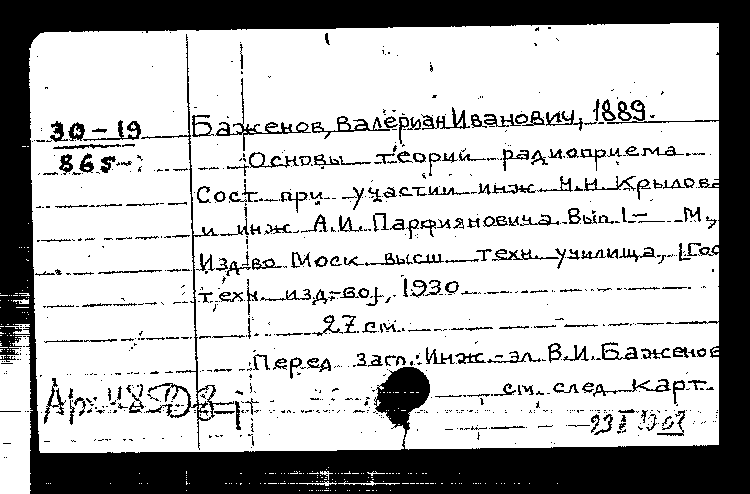 30-19
865-
Баженов, Валериан Иванович, 1889.
Основы теории радиоприема.
Сост. при участии инж. Н.Н. Крылова
и инж. А.И. Парфияновича. Вып. 1- М.,
Изд-во Моск. высш. техн. училища, [Гос
техн. изд-во], 1930.
27 см.
Перед загл.: Инж.-эл. В.И. Баженов
см. след. карт.